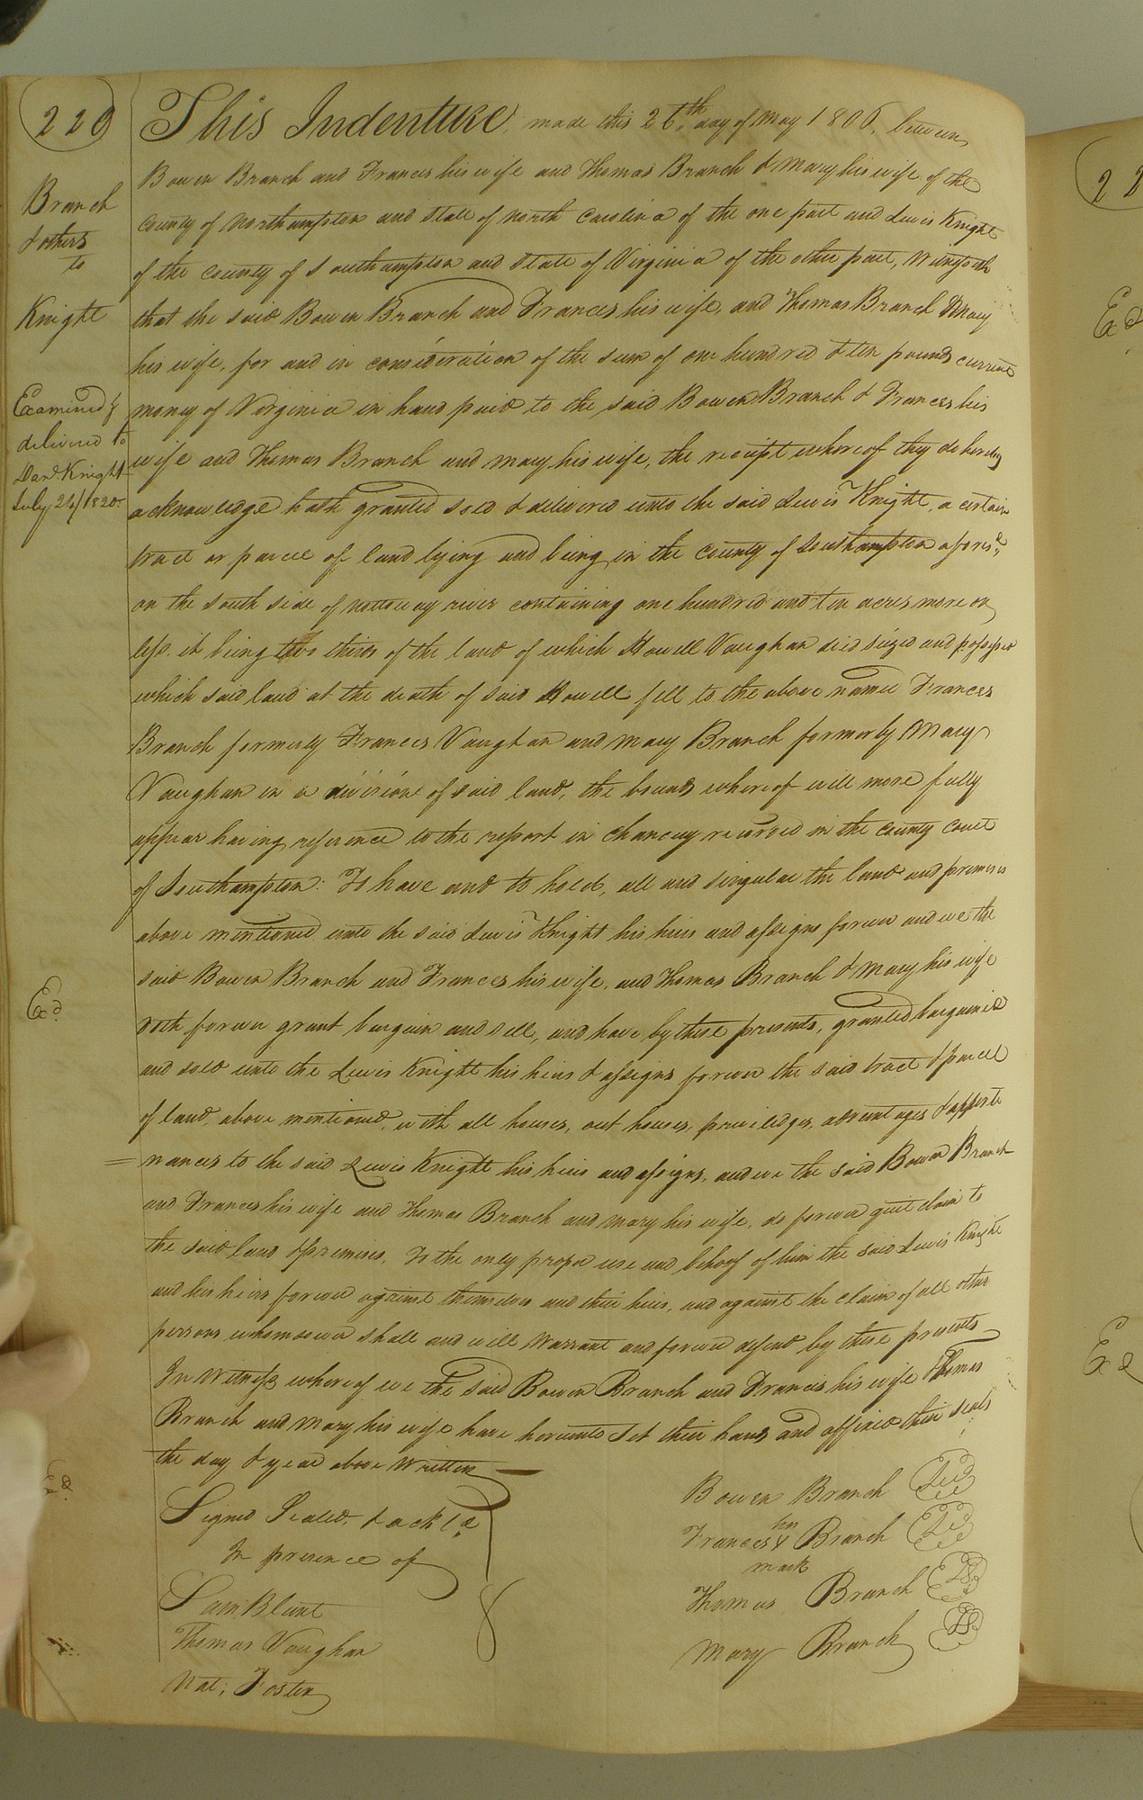 220
Branch
& others
to
Knight
Examined &
delivered to
Dan.l Knight
July 24/1820.
This Indenture, made this 26.th day of May 1806, between
Bowen Branch and Frances his wife and Thomas Branch & Mary his wife of the
County of Northampton and State of North Carolina of the one part and Lewis Knight
of the County of Southampton and State of Virginia of the other part, Witnesseth
that the said Bowen Branch and Frances his wife, and Thomas Branch & Mary
his wife, for and in consideration of the sum of one hundred & ten pounds current
money of Virginia in hand paid to the said Bowen Branch & Frances his
wife and Thomas Branch and Mary his wife, the receipt whereof they do hereby
acknowledge hath granted sold & delivered unto the said Lewis Knight, a certain
tract or parcel of land lying and being in the County of Southampton afores.d
on the South side of Nottoway river containing one hundred and ten acres more or
less. it being two thirds of the land of which Howell Vaughan died seized and possessed
which said land at the death of said Howell fell to the above named Frances
Branch formerly Frances Vaughan and Mary Branch formerly Mary
Vaughan in a division of said land, the bounds whereof will more fully
appear having reference to the report in chancery recorded in the County Court
of Southampton: To have and to hold, all and singular the land and premises
above mentioned unto the said Lewis Knight his heirs and assigns forever and we the
said Bowen Branch and Frances his wife, and Thomas Branch & Mary his wife
doth forever grant bargain and sell, and have by these presents, granted bargained
and sold unto the Lewis Knight his heirs & assigns forever the said tract & parcel
of land, above mentioned, with all houses, out houses, priviledges, advantages & apperte
= nances to the said Lewis Knight his heirs and assigns, and we the said Bowen Branch
and Frances his wife and Thomas Branch and Mary his wife, do forever quit claim to
the said land & premises, To the only proper use and behoof of him the said Lewis Knight
and his heirs forever against themselves and their heirs, and against the claim of all other
persons whomsoever shall and will Warrant and forever defend by these presents
In Witness whereof we the said Bowen Branch and Frances his wife Thomas
Branch and Mary his wife have hereunto set their hands and affixed their seals
the day & year above written
Signed Sealed, & ackl.d
In presence of
Sam Blunt
Thomas Vaughan
Nat; Foster
Bowen Branch LS
her
Frances X Branch LS
mark
Thomas Branch LS
Mary Branch LS
Ex.d
Ex.d
22
Ex
Ex.d